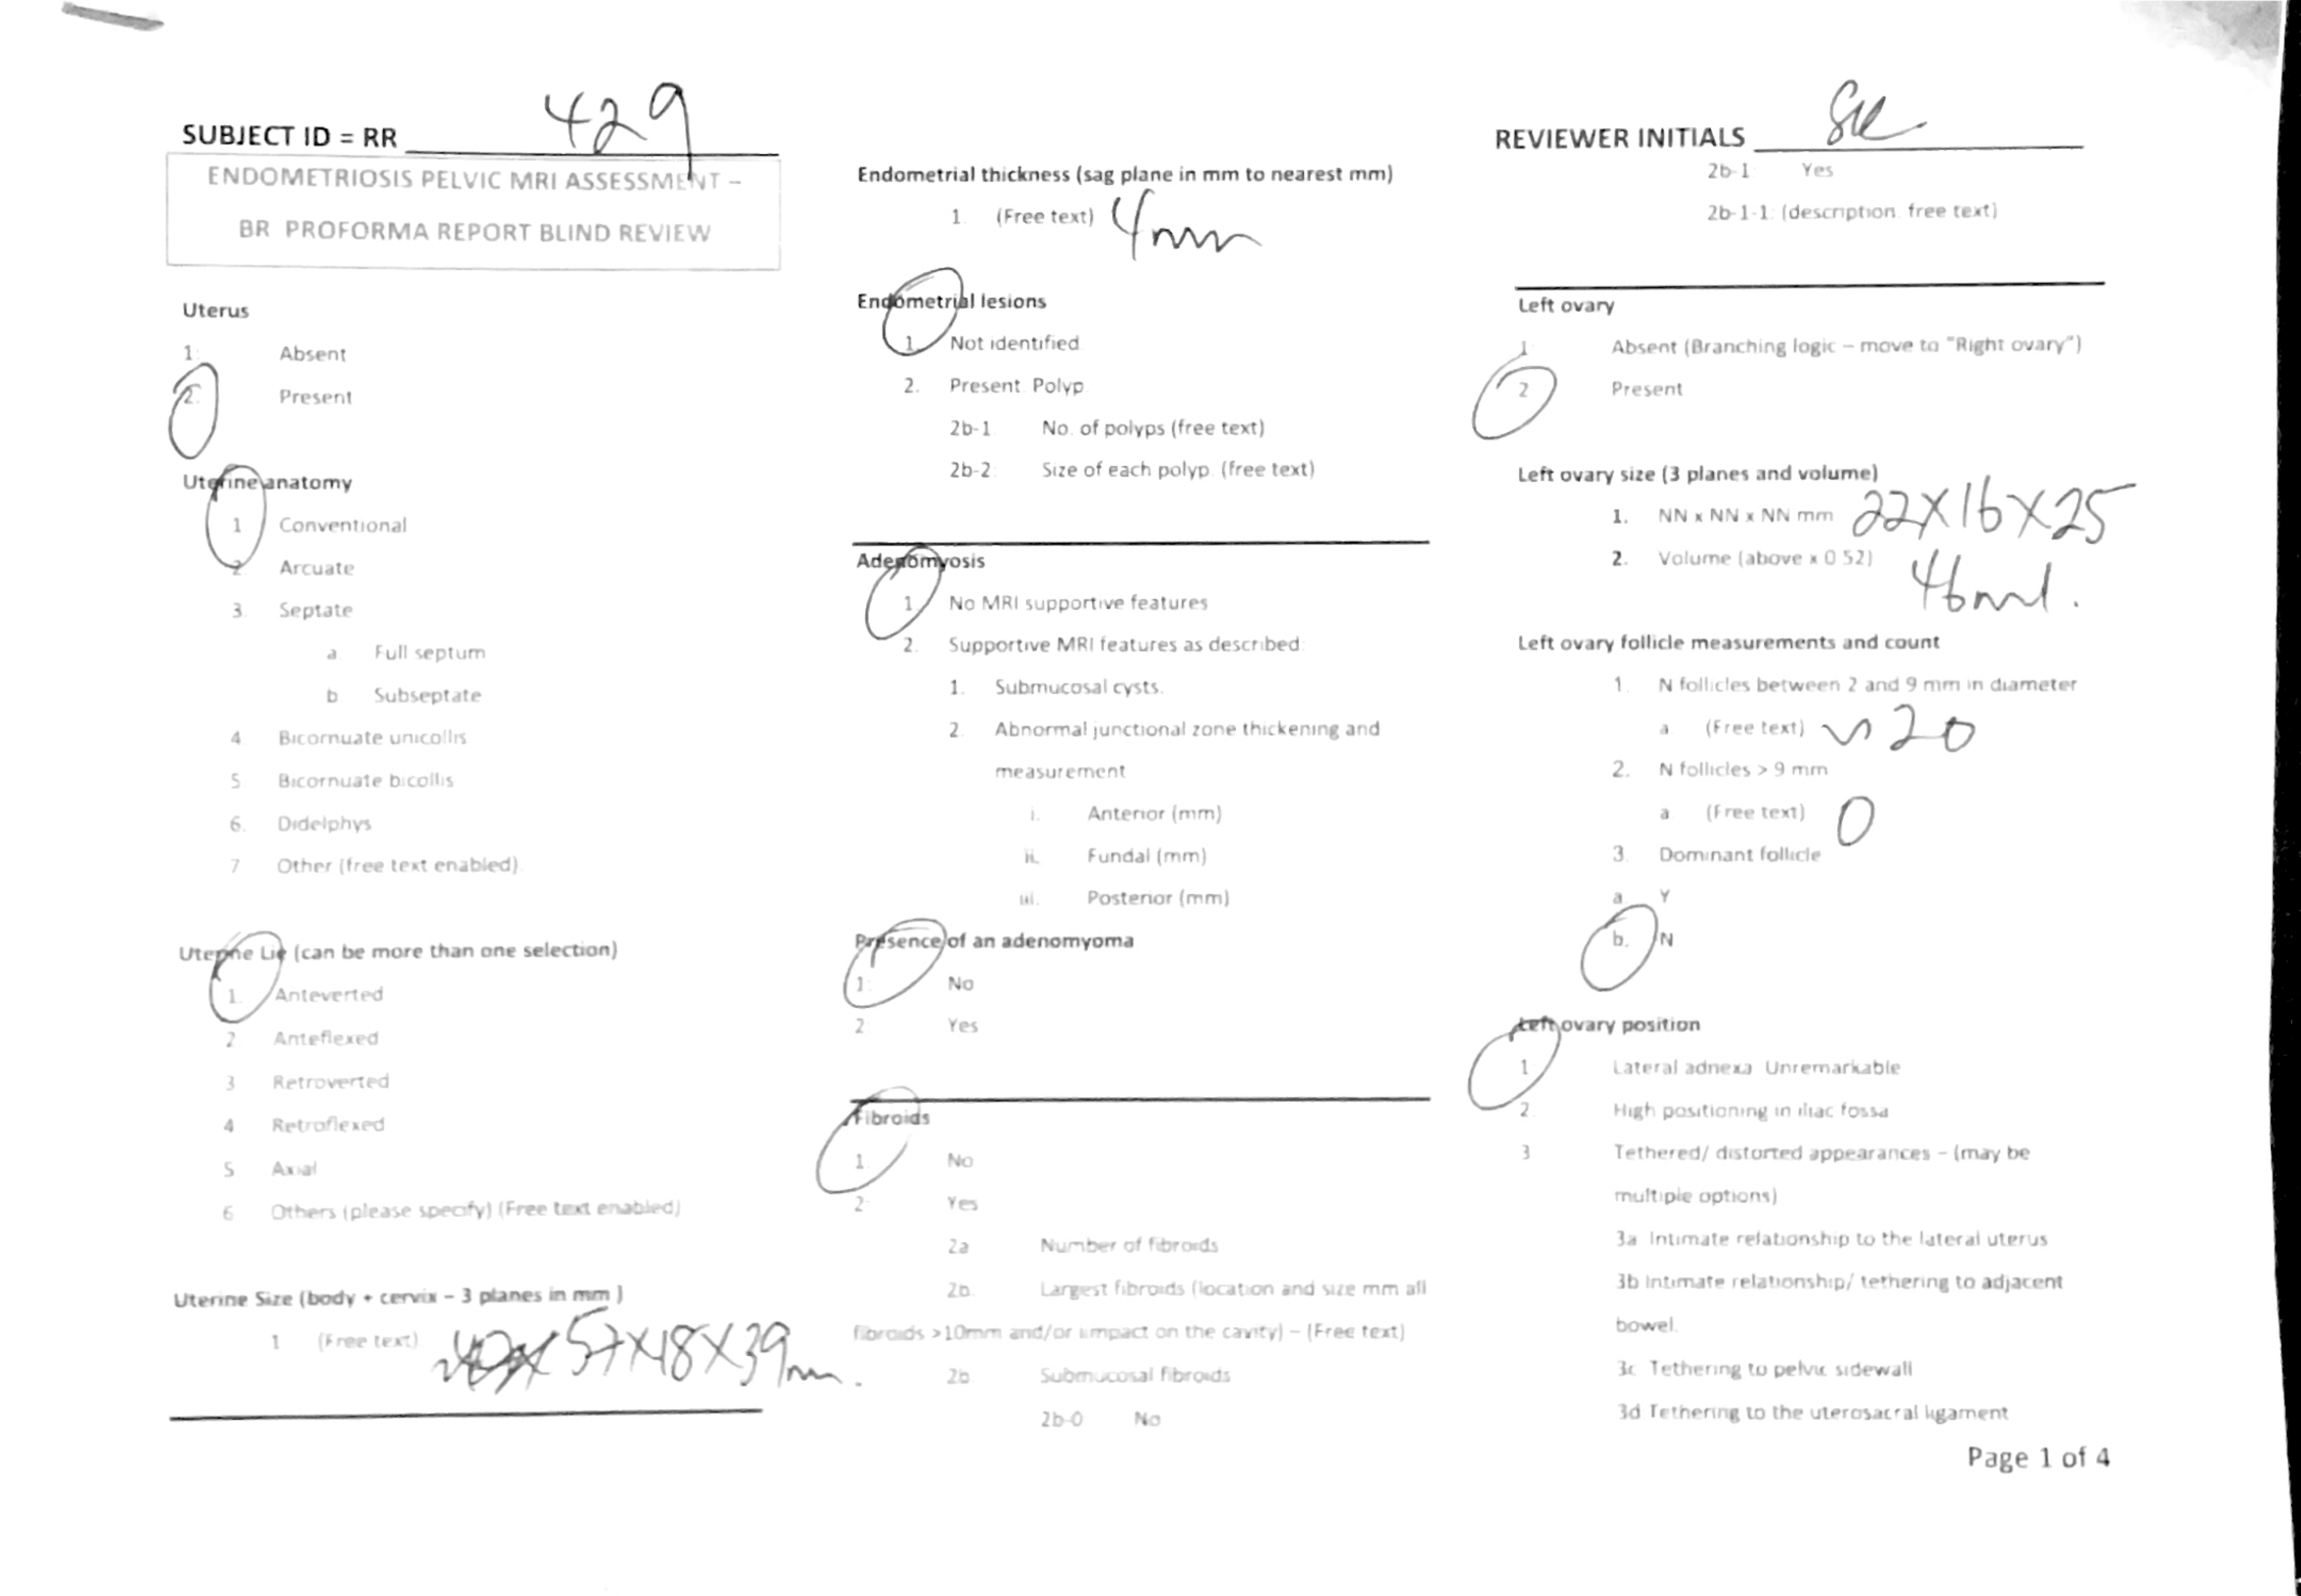 SUBJECT ID = RR 429
ENDOMETRIOSIS PELVIC MRI ASSESSMENT –
BR PROFORMA REPORT BLIND REVIEW
Uterus
1. Absent
2. Present
Uterine anatomy
1 Conventional
2. Arcuate
3. Septate
a. Full septum
b Subseptate
4 Bicornuate unicollis
5 Bicornuate bicollis
6. Didelphys
7 Other (free text enabled).
Uterine Lie (can be more than one selection)
1. Anteverted
2 Anteflexed
3 Retroverted
4 Retroflexed
5 Axial
6 Others (please specify) (Free text enabled)
Uterine Size (body + cervix – 3 planes in mm )
1 (Free text) 57x18x39mm.
Endometrial thickness (sag plane in mm to nearest mm)
1. (Free text) 4mm
Endometrial lesions
1. Not identified
2. Present. Polyp
2b-1 No. of polyps (free text)
2b-2: Size of each polyp. (free text)
Adenomyosis
1. No MRI supportive features
2. Supportive MRI features as described:
1. Submucosal cysts.
2. Abnormal junctional zone thickening and
measurement
i. Anterior (mm)
ii. Fundal (mm)
iii. Posterior (mm)
Presence of an adenomyoma
1: No
2: Yes
Fibroids
1. No
2: Yes
2a Number of fibroids
2b. Largest fibroids (location and size mm all
fibroids >10mm and/or iimpact on the cavity) – (Free text)
2b. Submucosal fibroids
2b-0 No
REVIEWER INITIALS
2b-1: Yes
2b-1-1: (description: free text)
Left ovary
1 Absent (Branching logic – move to "Right ovary")
2 Present
Left ovary size (3 planes and volume)
1. NN x NN x NN mm 22x16x25
2. Volume (above x 0.52) 46ml.
Left ovary follicle measurements and count
1. N follicles between 2 and 9 mm in diameter
a (Free text) ~20
2. N follicles > 9 mm
a (Free text) 0
3. Dominant follicle
a Y
b. N
Left ovary position
1 Lateral adnexa Unremarkable
2. High positioning in iliac fossa
3 Tethered/ distorted appearances – (may be
multiple options)
3a Intimate relationship to the lateral uterus
3b Intimate relationship/ tethering to adjacent
bowel.
3c Tethering to pelvic sidewall
3d Tethering to the uterosacral ligament
Page 1 of 4